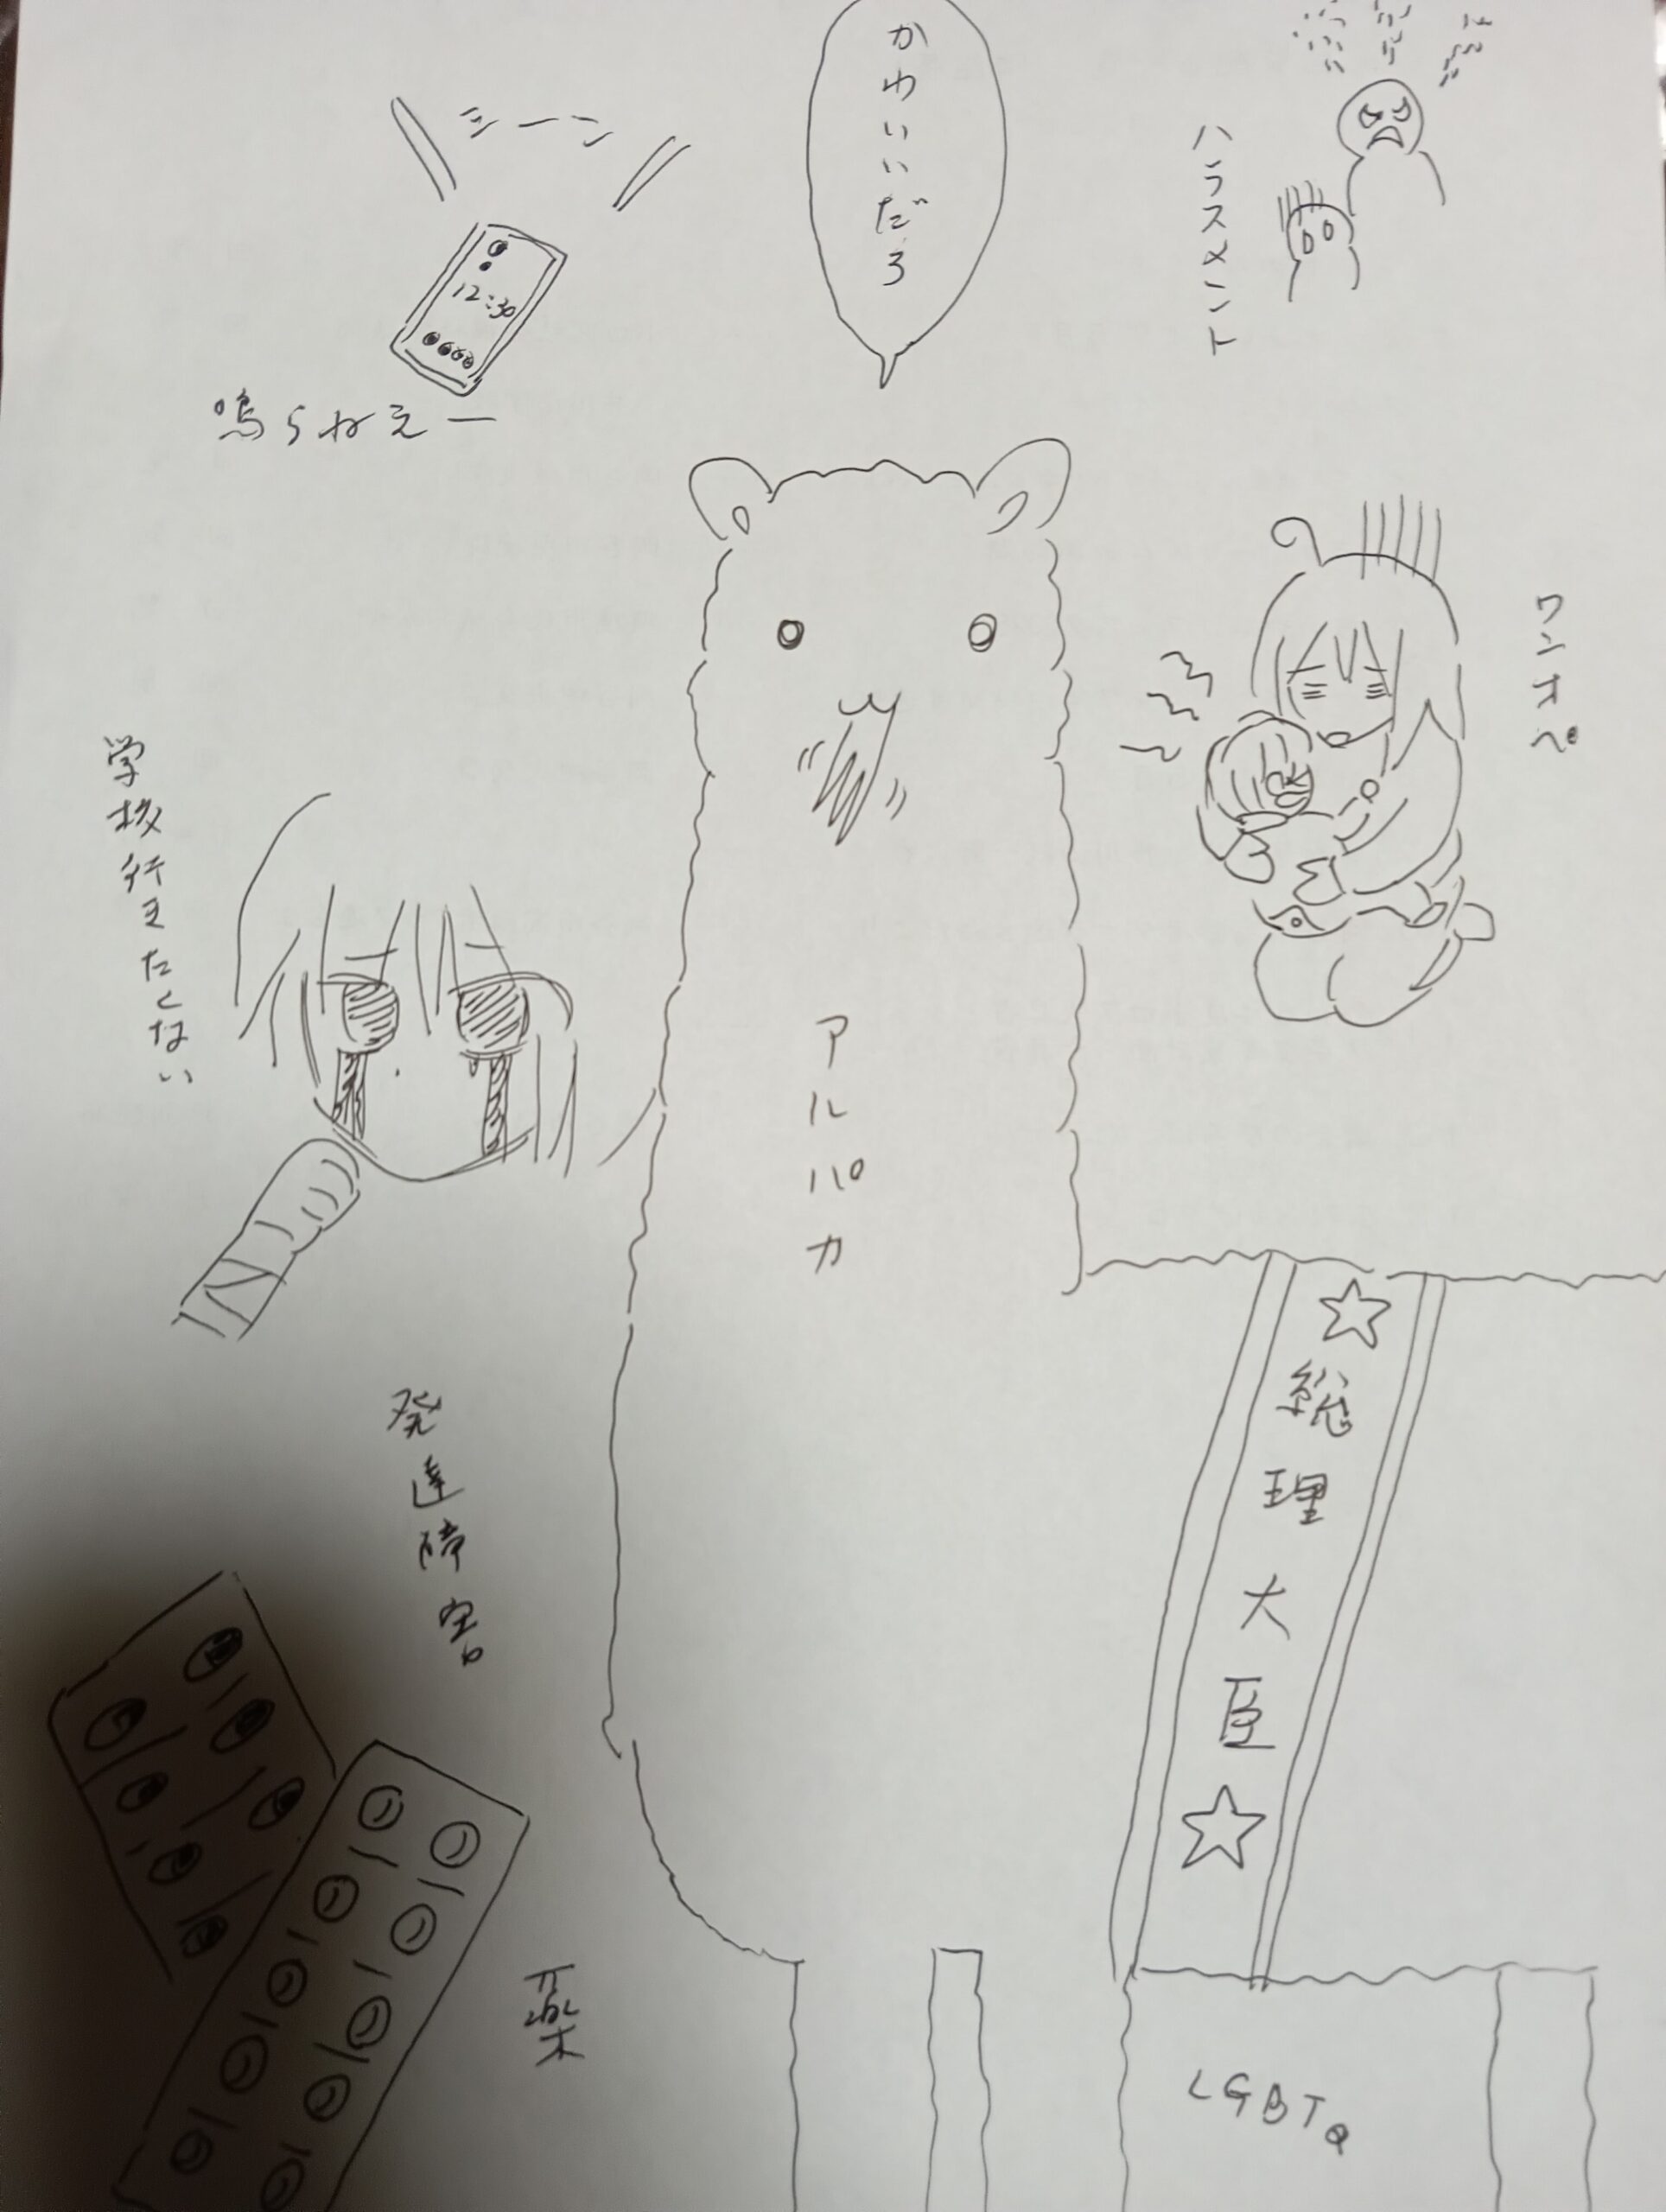 ハラスメント
かわいいだろ
シーン
12:30
鳴らねえー
ワンオペ
学校行きたくない
アルパカ
☆総理大臣☆
発達障害
薬
LGBTQ